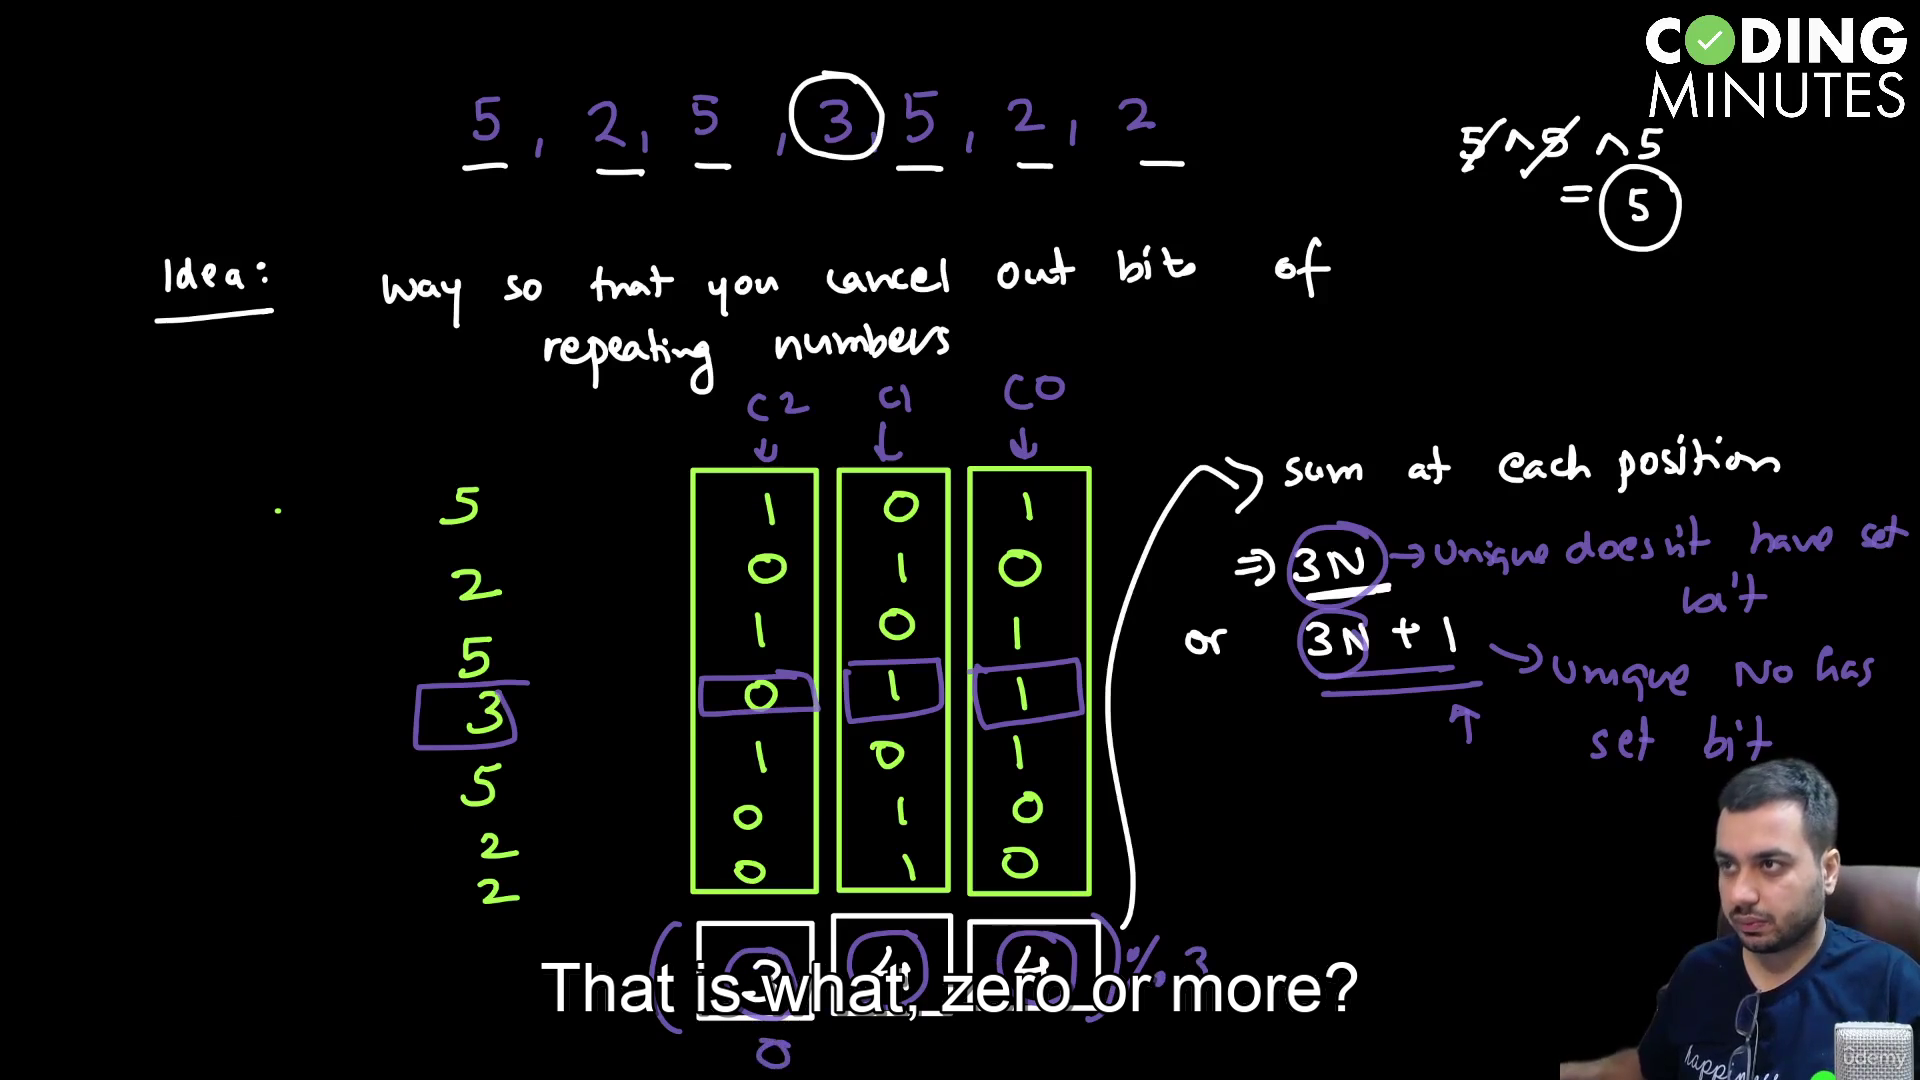 CODING
MINUTES
5, 2, 5, 3, 5, 2, 2
5 ^ 5 ^ 5
= 5
Idea: way so that you cancel out bits of
repeating numbers
C2 C1 C0
5 1 0 1
2 0 1 0
5 1 0 1
3 0 1 1
5 1 0 1
2 0 1 0
2 0 1 0
(3 4 4) % 3
0
sum at each position
⇒ 3N → Unique doesn't have set
bit
or 3N + 1 → Unique No has
set bit
That is what, zero or more?
happiness
udemy